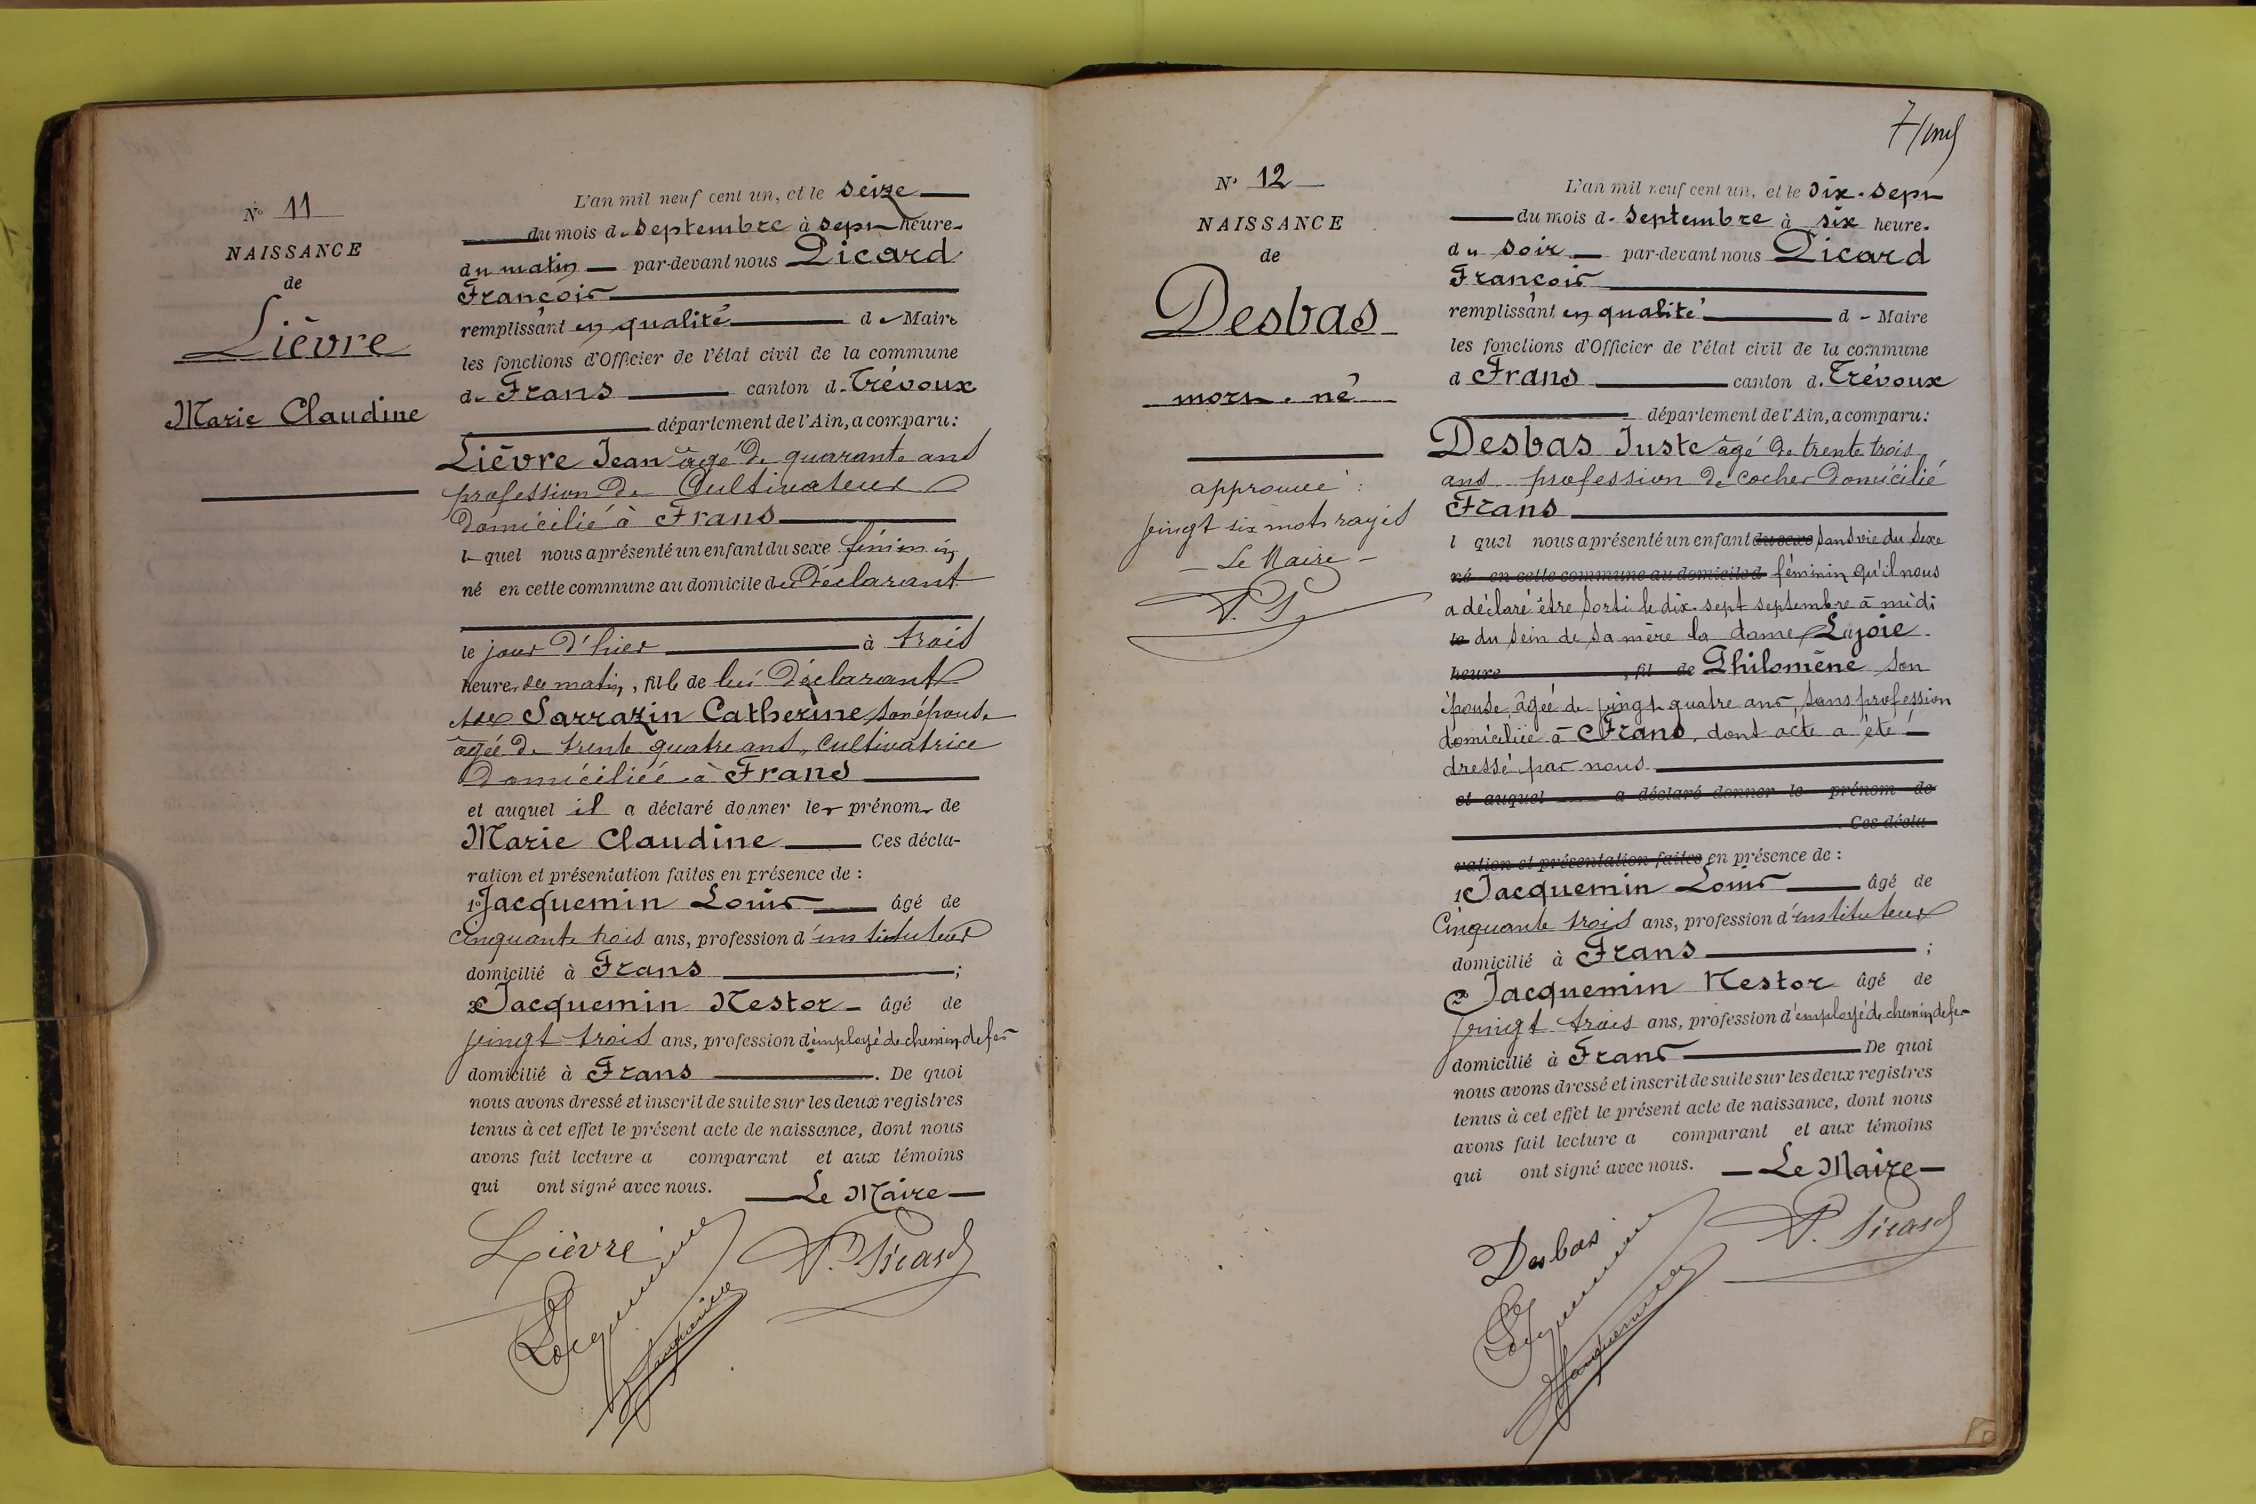 N° 11
NAISSANCE
de
Lièvre
Marie Claudine
L'an mil neuf cent un, et le seize
du mois de septembre à sept heures
du matin par-devant nous Picard
François
remplissant en qualité de Maire
les fonctions d'Officier de l'état civil de la commune
de Frans canton de Trévoux
département de l'Ain, a comparu :
Lièvre Jean âgé de quarante ans
profession de Cultivateur
domicilié à Frans
lequel nous a présenté un enfant du sexe féminin
né en cette commune au domicile du Déclarant
le jour d'hier à trois
heures du matin, fille de lui Déclarant
et de Sarrazin Catherine son épouse
âgée de trente quatre ans, cultivatrice
domiciliée à Frans
et auquel il a déclaré donner les prénoms de
Marie Claudine Ces décla-
ration et présentation faites en présence de :
1° Jacquemin Louis âgé de
cinquante trois ans, profession d'instituteur
domicilié à Frans ;
2° Jacquemin Nestor âgé de
vingt trois ans, profession d'employé de chemin de fer
domicilié à Frans . De quoi
nous avons dressé et inscrit de suite sur les deux registres
tenus à cet effet le présent acte de naissance, dont nous
avons fait lecture a comparant et aux témoins
qui ont signé avec nous. Le Maire
Lièvre
Jacquemin
Jacquemin
P. Picard
N° 12
NAISSANCE
de
Desbas
mort-né
approuvé :
vingt six mots rayés
Le Maire
P. P.
L'an mil neuf cent un, et le dix-sept
du mois de septembre à six heures
du soir par-devant nous Picard
François
remplissant en qualité de Maire
les fonctions d'Officier de l'état civil de la commune
d Frans canton de Trévoux
département de l'Ain, a comparu :
Desbas Juste âgé de trente trois
ans profession de cocher domicilié
Frans
l quel nous a présenté un enfant du sexe sans vie du sexe
né en cette commune au domicile d féminin qu'il nous
a déclaré être sorti le dix-sept septembre à midi
le du sein de sa mère la dame Lajoie
heure , fil de Philomène son
épouse, âgée de vingt quatre ans, sans profession
domiciliée à Frans, dont acte a été
dressé par nous
et auquel a déclaré donner le prénom de
Ces décla-
ration et présentation faites en présence de :
1° Jacquemin Louis âgé de
cinquante trois ans, profession d'instituteur
domicilié à Frans ;
2° Jacquemin Nestor âgé de
vingt trois ans, profession d'employé de chemin de fer
domicilié à Frans De quoi
nous avons dressé et inscrit de suite sur les deux registres
tenus à cet effet le présent acte de naissance, dont nous
avons fait lecture a comparant et aux témoins
qui ont signé avec nous. Le Maire
Desbas
Jacquemin
Jacquemin
P. Picard